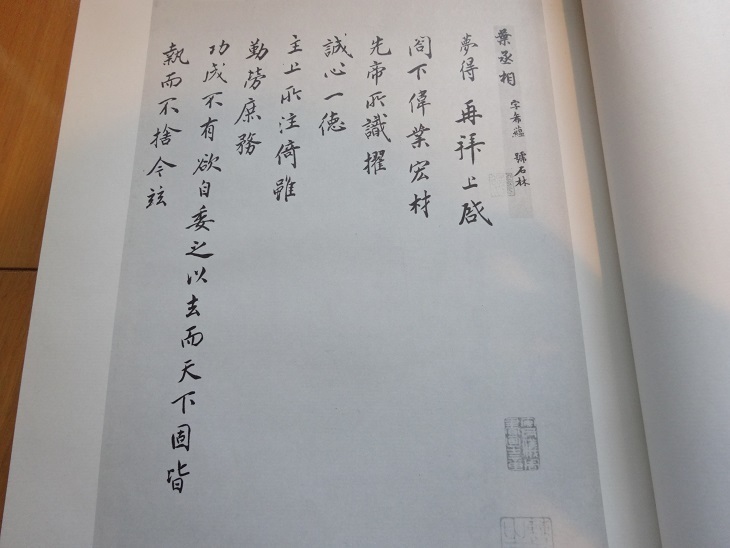 葉丞相 字希蘊 號石林
夢得再拜上啟
閤下偉業宏材
先帝所識擢
誠心一德
主上所注倚雖
勤勞庶務
功成不有欲自委之以去而天下固皆
執而不捨令茲